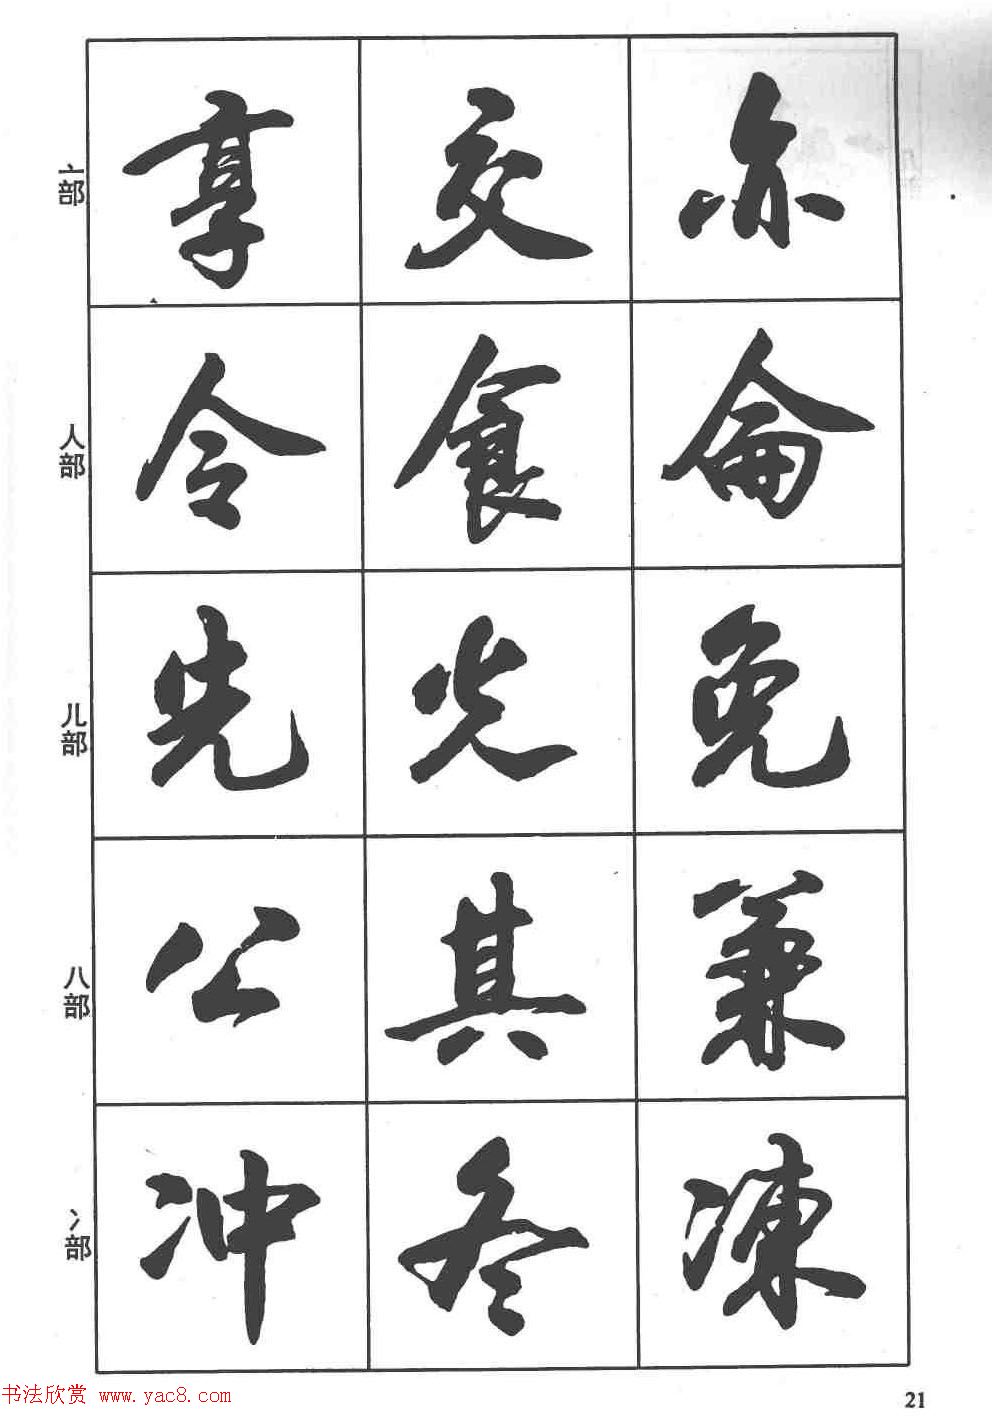 亠部 享 交 亦
人部 令 食 侖
儿部 先 光 免
八部 公 其 兼
冫部 冲 冬 凍
书法欣赏 www.yac8.com
21